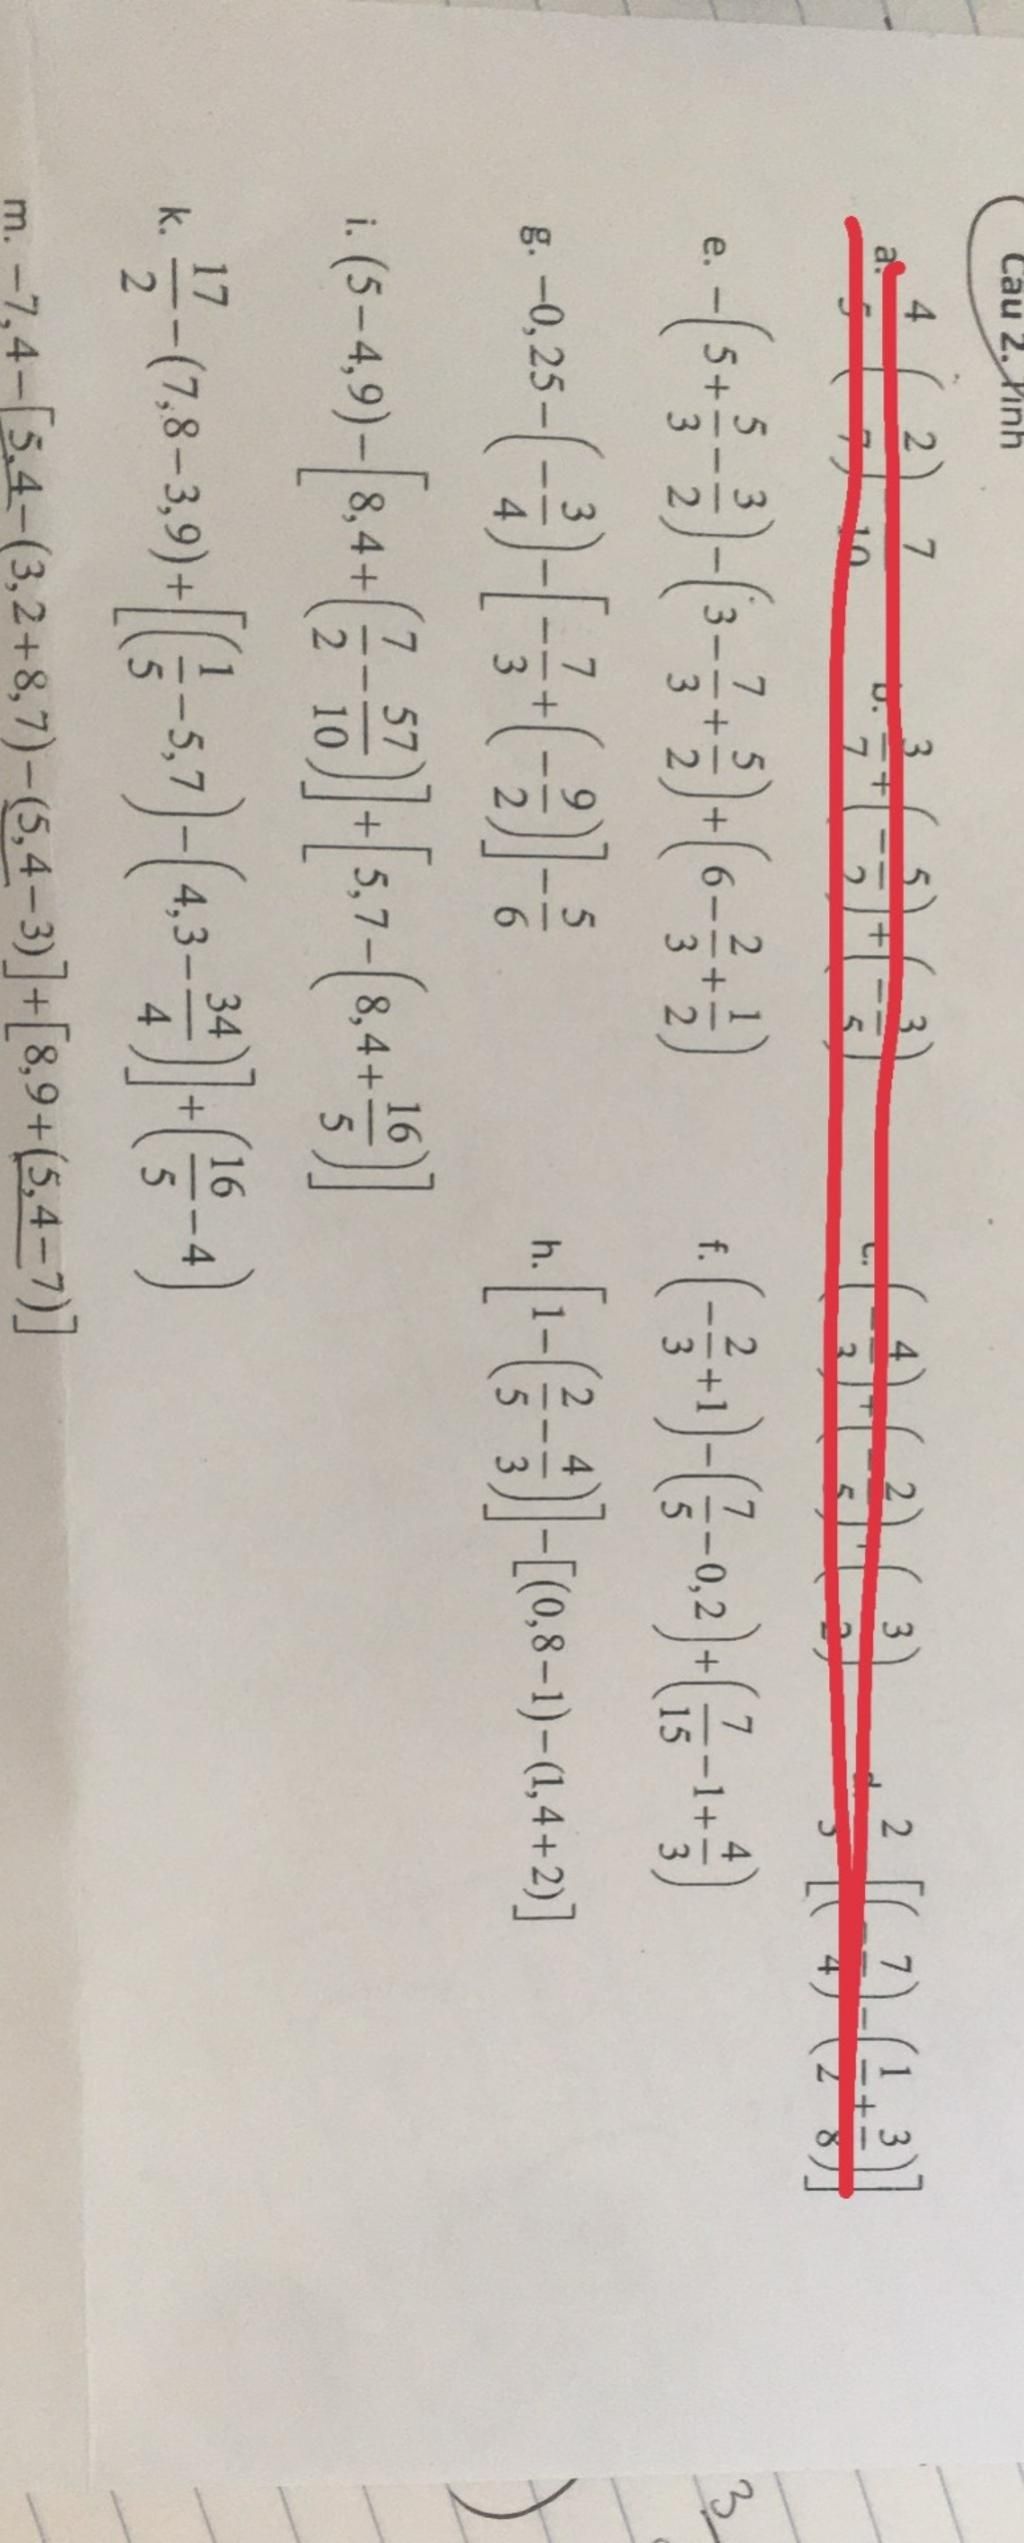 Câu 2. Tính
a. 4/5 (2/7) 7/10 b. 3/7 + (-5/2) + (-3/5) c. (-4/3) + (-2/5) + (3/2) d 2/3 [(-7/4) - (1/2 + 3/8)]
e. -(5 + 5/3 - 3/2) - (3 - 7/3 + 5/2) + (6 - 2/3 + 1/2) f. (-2/3 + 1) - (7/5 - 0,2) + (7/15 - 1 + 4/3)
g. -0,25 - (-3/4) - [-7/3 + (-9/2)] - 5/6 h. [1 - (2/5 - 4/3)] - [(0,8 - 1) - (1,4 + 2)]
i. (5 - 4,9) - [8,4 + (7/2 - 57/10)] + [5,7 - (8,4 + 16/5)]
k. 17/2 - (7,8 - 3,9) + [(1/5 - 5,7) - (4,3 - 34/4)] + (16/5 - 4)
m. -7,4 - [5,4 - (3,2 + 8,7) - (5,4 - 3)] + [8,9 + (5,4 - 7)]
3